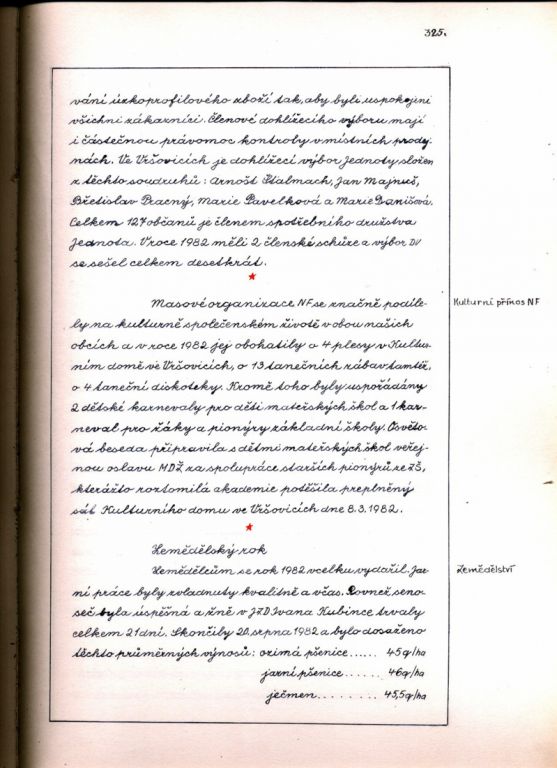 325.
vání úzkoprofilového zboží tak, aby byli uspokojeni
všichni zákazníci. Členové dohlížecího výboru mají
i částečnou právomoc kontroly v místních prodej-
nách. Ve Vršovicích je dohlížecí výbor Jednoty složen
z těchto soudruhů: Arnošt Stalmach, Jan Majnuš,
Břetislav Pracný, Marie Pavelková a Marie Danišová.
Celkem 127 občanů je členem spotřebního družstva
Jednota. V roce 1982 měli 2 členské schůze a výbor DV
se sešel celkem desetkrát.
Masové organizace NF se značně podíle-
Kulturní přínos NF
ly na kulturně společenském životě v obou našich
obcích a v roce 1982 jej obohatily o 4 plesy v Kultur-
ním domě ve Vršovicích, o 13 tanečních zábav tamtéž,
o 4 taneční diskoteky. Kromě toho byly uspořádány
2 dětské karnevaly pro děti mateřských škol a 1 kar-
neval pro žáky a pionýry základní školy. Osvěto-
vá beseda připravila s dětmi mateřských škol veřej-
nou oslavu MDŽ za spolupráce starších pionýrů ze ZŠ,
kterážto roztomilá akademie potěšila preplněný
sál Kulturního domu ve Vršovicích dne 8.3.1982.
Zemědělský rok
Zemědělcům se rok 1982 vcelku vydařil. Jar-
Zemědělství
ní práce byly zvládnuty kvalitně a včas. Rovněž seno-
seč byla úspěšná a žně v JZD Ivana Kubince trvaly
celkem 21 dní. Skončily 20. srpna 1982 a bylo dosaženo
těchto průměrných výnosů: ozimá pšenice...... 45 q/ha
jarní pšenice...... 46 q/ha
ječmen........ 45,5 q/ha